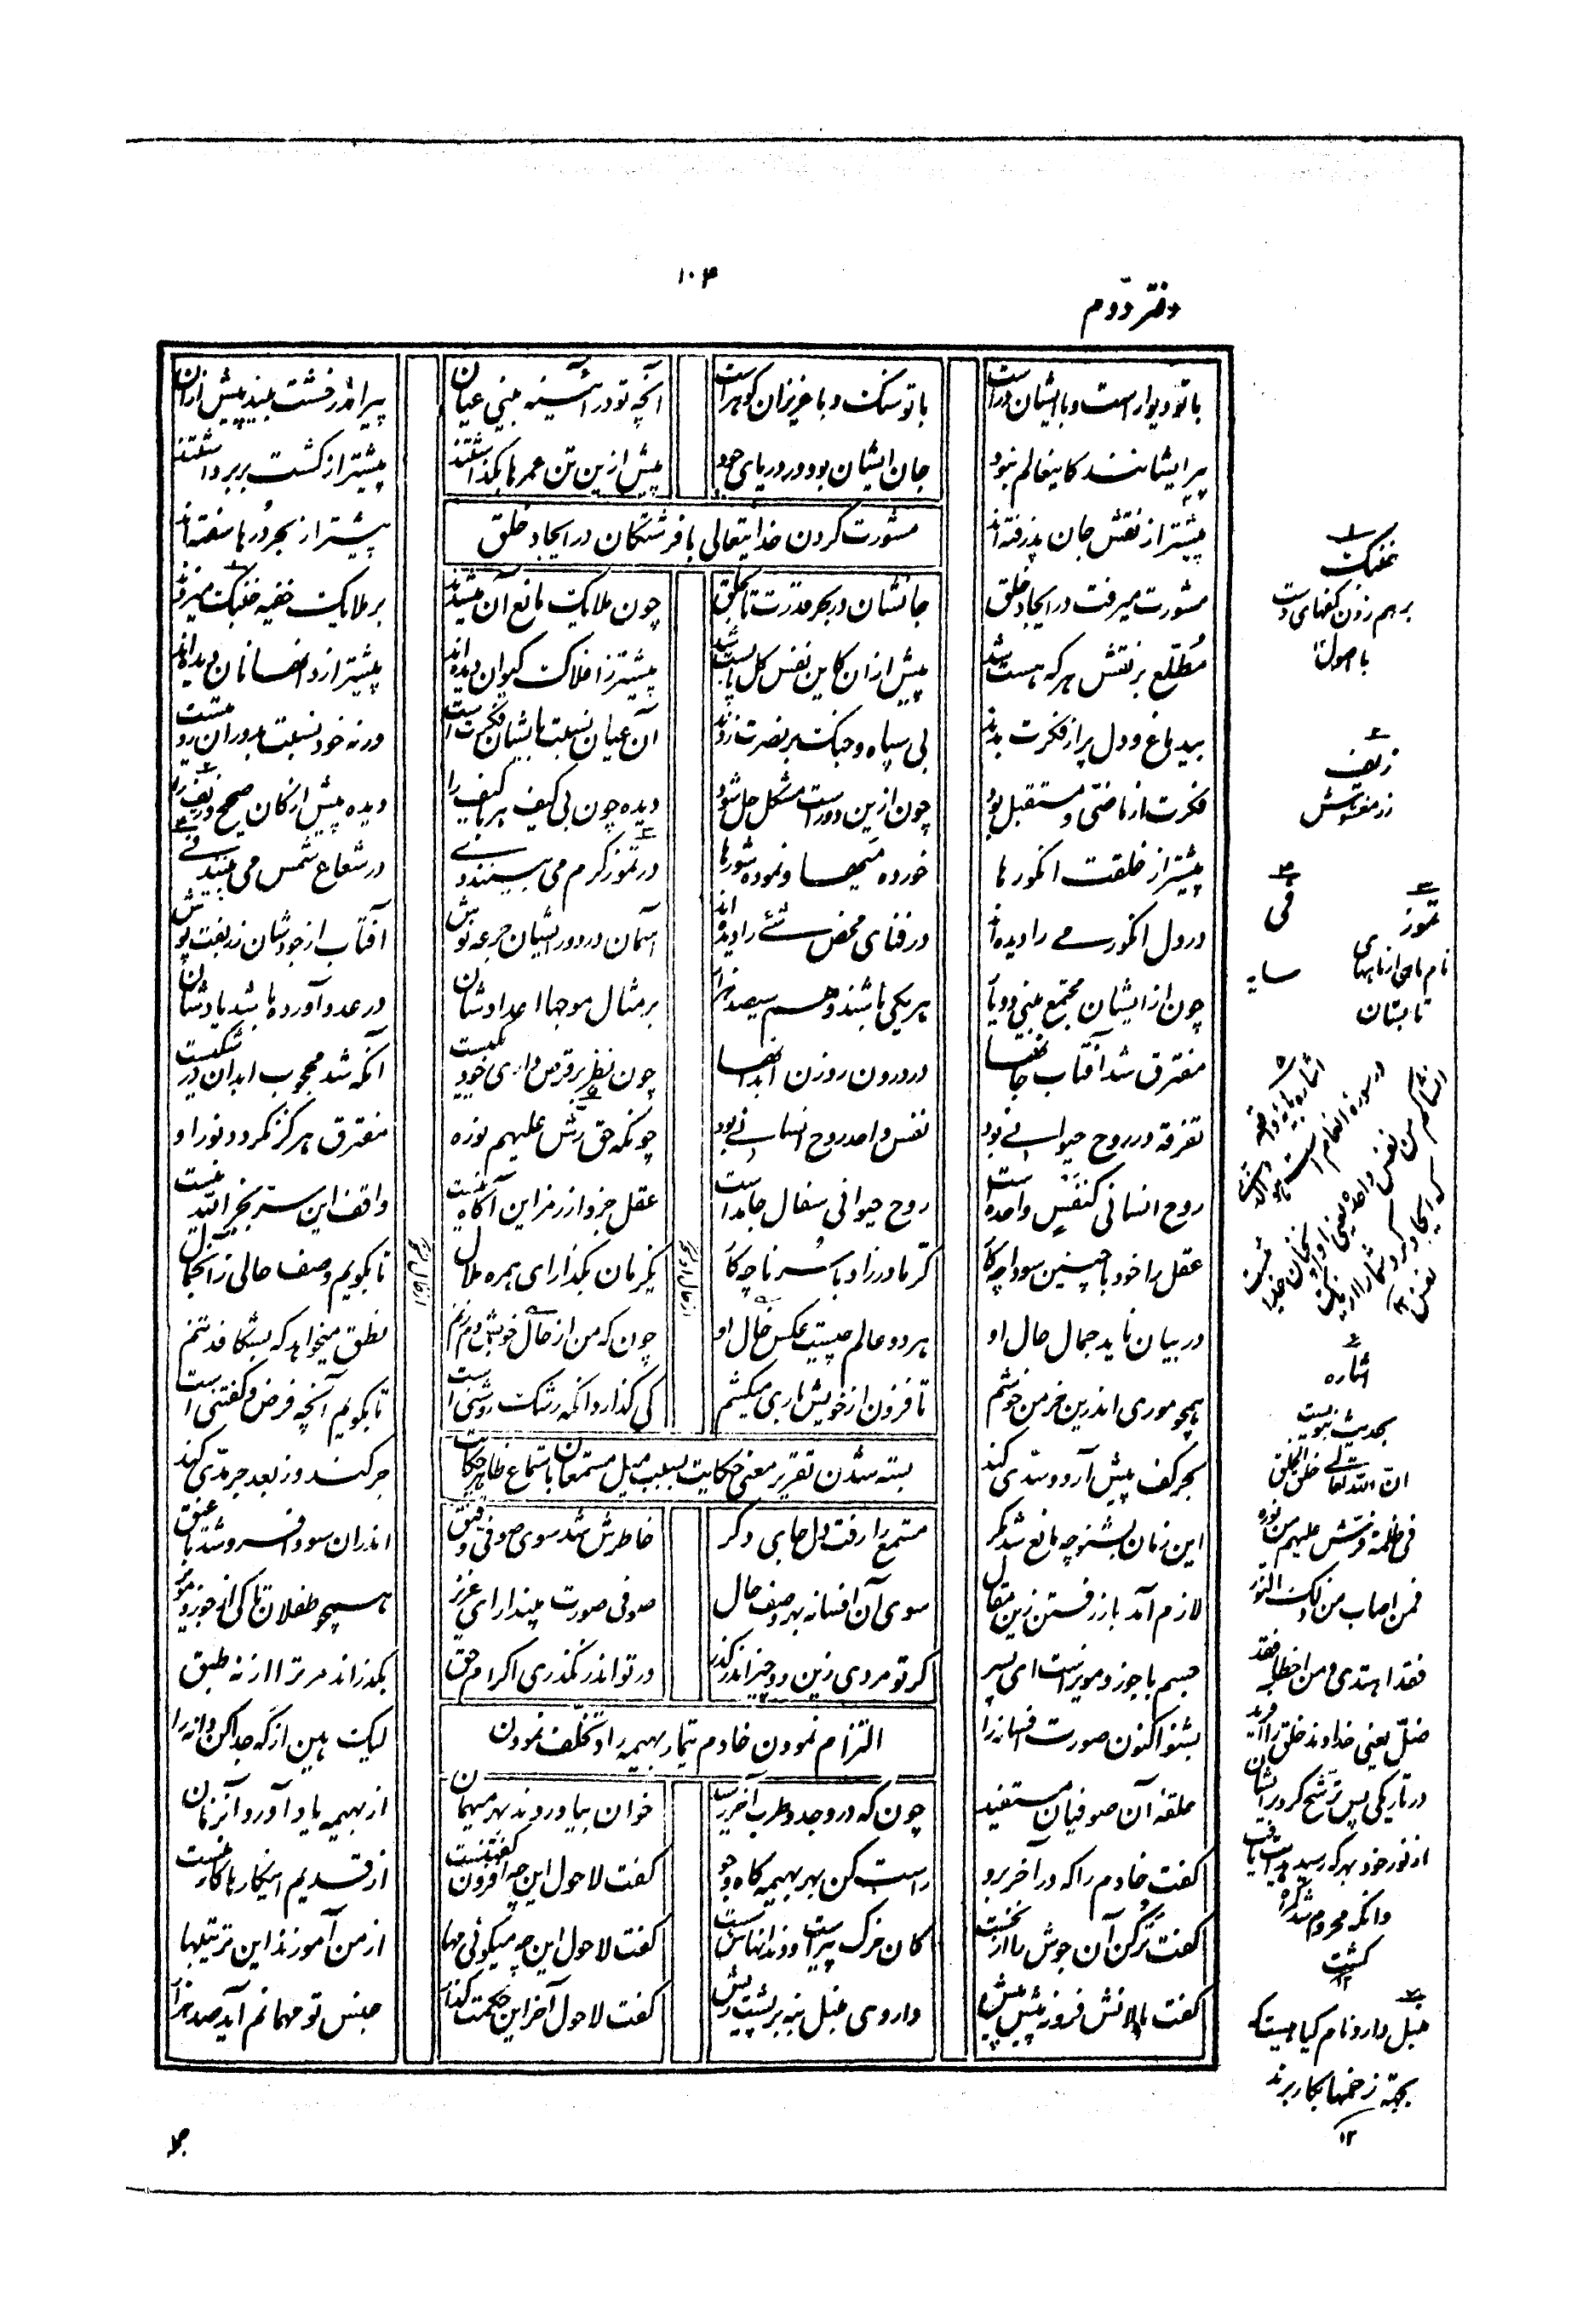 ۱۰۴
دفتر دوم
با تو دیوار است و با ایشان در است
با تو سنگ و با عزیزان گوهر است
آنچه تو در آئینه بینی عیان
پیر اندر خشت بیند پیش از آن
پیر ایشانند کاینعالم نبود
جان ایشان بود در دریای جود
پیش ازین تن عمرها بگذاشتند
پیشتر از کشت بر برداشتند
پیشتر از نقش جان پذرفته‌اند
مشورت کردن خدایتعالی با فرشتگان در ایجاد خلق
پیشتر از بحر درها سفته‌اند
مشورت میرفت در ایجاد خلق
جانشان در بحر قدرت تا بحلق
چون ملایک مانع آن میشدند
بر ملایک خفیه خنبک میزدند
مطلع بر نقش هر که هست شد
پیش از آن کاین نفس کل پابست شد
پیشتر ز افلاک کیوان دیده‌اند
پیشتر از دانها نان دیده‌اند
بیدماغ و دل پر از فکرت بدند
بی سپاه و جنگ بر نصرت زدند
آن عیان نسبت بایشان فکرت است
ورنه خود نسبت بدوران رویت است
فکرت از ماضی و مستقبل بود
چون ازین دو رست مشکل حل شود
دیده چون بی کیف هر باکیف را
دیده پیش از کان صحیح و زیف را
پیشتر از خلقت انگورها
خورده میها و نموده شورها
در تموز گرم می بینند دی
در شعاع شمس می بینند فی
در دل انگور می را دیده‌اند
در فنای محض شئے را دیده‌اند
آسمان در دور ایشان جرعه نوش
آفتاب از جودشان زربفت پوش
چون از ایشان مجتمع بینی دو یار
هم یکی باشند و هم سیصد هزار
بر مثال موجها اعدادشان
در عدد آورده باشد بادشان
مفترق شد آفتاب جانها
در درون روزن ابدانها
چون نظر بر قرص داری خود یکیست
آنکه شد محجوب ابدان در شکیست
تفرقه در روح حیوانی بود
نفس واحد روح انسانی بود
چونکه حق رش علیهم نوره
مفترق هرگز نگردد نور او
روح انسانی کنفس واحده است
روح حیوانی سفال جامده است
عقل جزو از رمز این آگاه نیست
واقف این سر بجز الله نیست
عقل را خود با چنین سودا چه کار
کر مادرزاد با سرنا چه کار
یکزمان بگذار ای همره ملال
تا بگویم وصف خالی ز آنجمال
در بیان ناید جمال حال او
هر دو عالم چیست عکس خال او
چون که من از خال خوبش دم زنم
نطق میخواهد که بشکافد تنم
همچو موری اندرین خرمن خوشم
تا فزون از خویش باری میکشم
کی گذارد آنکه رشک روشنی است
تا بگویم آنچه فرض و گفتنی است
بسته شدن تقریر معنی حکایت بسبب میل مستمعان باستماع ظاهر حکایت
بحر کف پیش آرد و سدی کند
جر کند وز بعد جر مدی کند
این زمان بشنو چه مانع شد مگر
مستمع را رفت دل جای دگر
خاطرش شد سوی صوفی قنق
اندران سودا فرو شد تا عنق
لازم آمد باز رفتن زین مقال
سوی آن افسانه بهر وصف حال
صوفی صورت مپندار ای عزیز
همچو طفلان تا کی از جوز و مویز
جسم ما جوز و مویزست ای پسر
گر تو مردی زین دو چیز اندر گذر
ور تو اندر نگذری اکرام حق
بگذراند مر ترا از نه طبق
بشنو اکنون صورت افسانه را
التزام نمودن خادم تیمار بهیمه را و تخلف نمودن
لیک هین از که جدا کن دانه را
حلقه آن صوفیان مستفید
چون که در وجد و طرب آخر رسید
خوان بیاوردند بهر میهمان
از بهیمه یاد آورد آنزمان
گفت خادم را که در آخر برو
راست کن بهر بهیمه کاه و جو
گفت لاحول این چه افزون گفتنست
از قدیم اینکارها کار منست
گفت تر کن آن جوش را از نخست
کان خرک پیرست و دندانهاش سست
گفت لاحول این چه میگوئی مها
از من آموزند این ترتیبها
گفت پالانش فرو نه پیش پیش
داروی منبل بنه بر پشت ریش
گفت لاحول آخر این حکمت گذار
جنس تو مهمانم آمد صد هزار
خنبک
برهم زدن کفهای دست
با اصول
زیف
زر مغشوش
تموز
نام ماهی از ماههای
تابستان
فی
سایه
اشاره
بحدیث نبویست
ان الله تعالی خلق الخلق
فی ظلمة فرش علیهم من نوره
فمن اصاب من ذلک النور
فقد اهتدی و من اخطا فقد
ضل یعنی خداوند خلق را آفرید
در تاریکی پس ترشح کرد بر ایشان
از نور خود بهر که رسید هدایت یافت
وانکه محروم شد گمراه
گشت
۱۲
منبل دارو نام گیاهیست که
بجهة زخمها بکار برند
۱۲